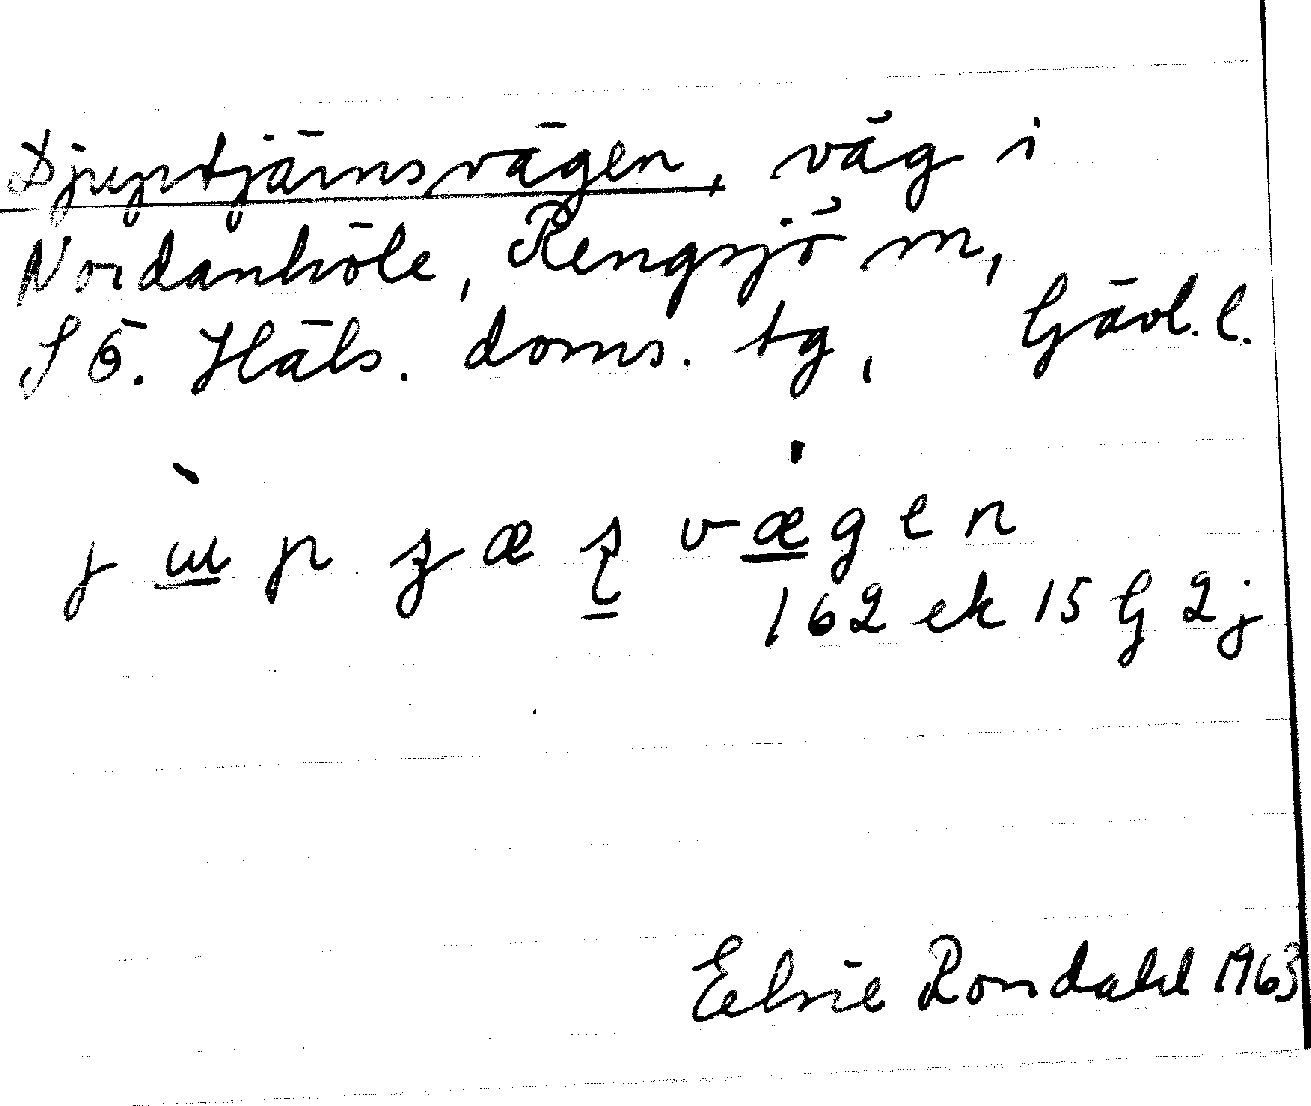 Djuptjärnsvägen, väg i
Nordanhöle, Rengsjö sn,
SÖ. Häls. doms. tg, Gävl. l.
jùp vægen
162 ek 15 G 2j
Elsie Rondahl 1963